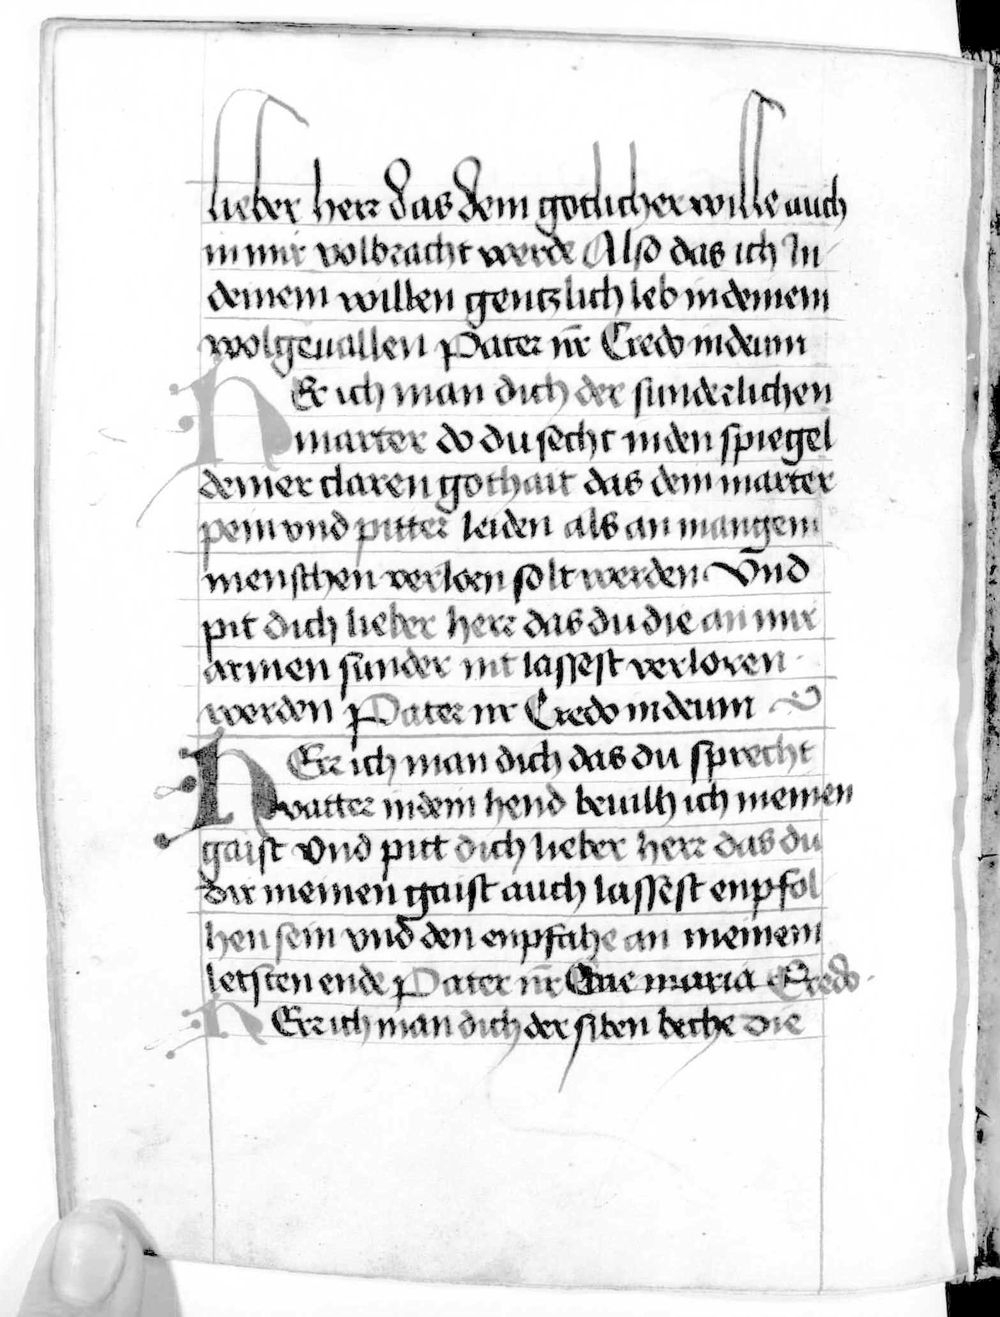 lieber herr das dein gotlicher wille auch
in mir volbracht werde Also das ich In
deinem willen gentzlich leb in deinem
wolgeuallen Pater nr̄ Credo in deum
HEr ich man dich der sunderlichen
marter do du secht in den spiegel
deiner claren gothait das dein marter
pein vnd pitter leiden als an mangem
menschen verloen solt werden Vnd
pit dich lieber herr das du die an mir
armen sunder nit lassest verloren
werden Pater nr Credo in deum
HErr ich man dich das du sprecht
vatter in dein hend beuilh ich meinen
gaist Vnd pitt dich lieber herr das du
dir meinen gaist auch lassest enpfol
hen sein vnd den enpfahe an meinem
letsten ende Pater nr̄ Aue maria Credo
HErr ich man dich der siben beche die